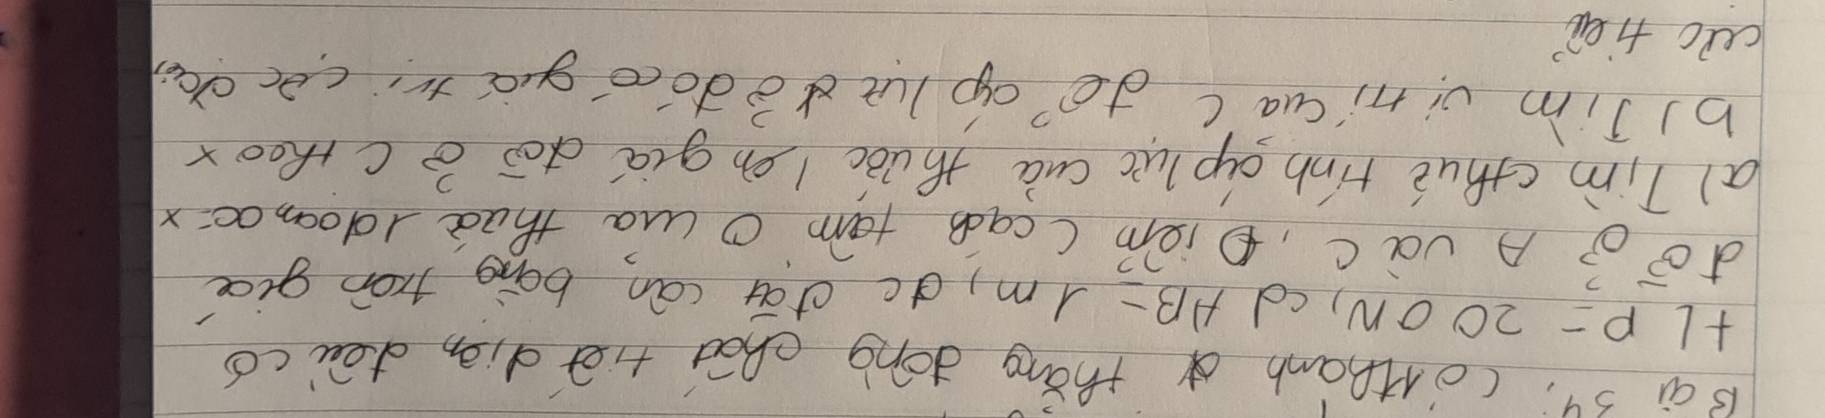 Bài 34: Có 1 thanh thẳng đồng chất tiết diện đều có
tL P = 200N, cd AB = 1m, đc đặt cân bằng trên giá
đỡ ở A và C, Điểm C cách tâm O của thước 1 đoạn oc = x
a) Tìm cthức tính áp lực của thước lên giá đỡ ở C theo x
b) Tìm vị trí của C để áp lực ở đó có giá trị cực đại,
cực tiểu